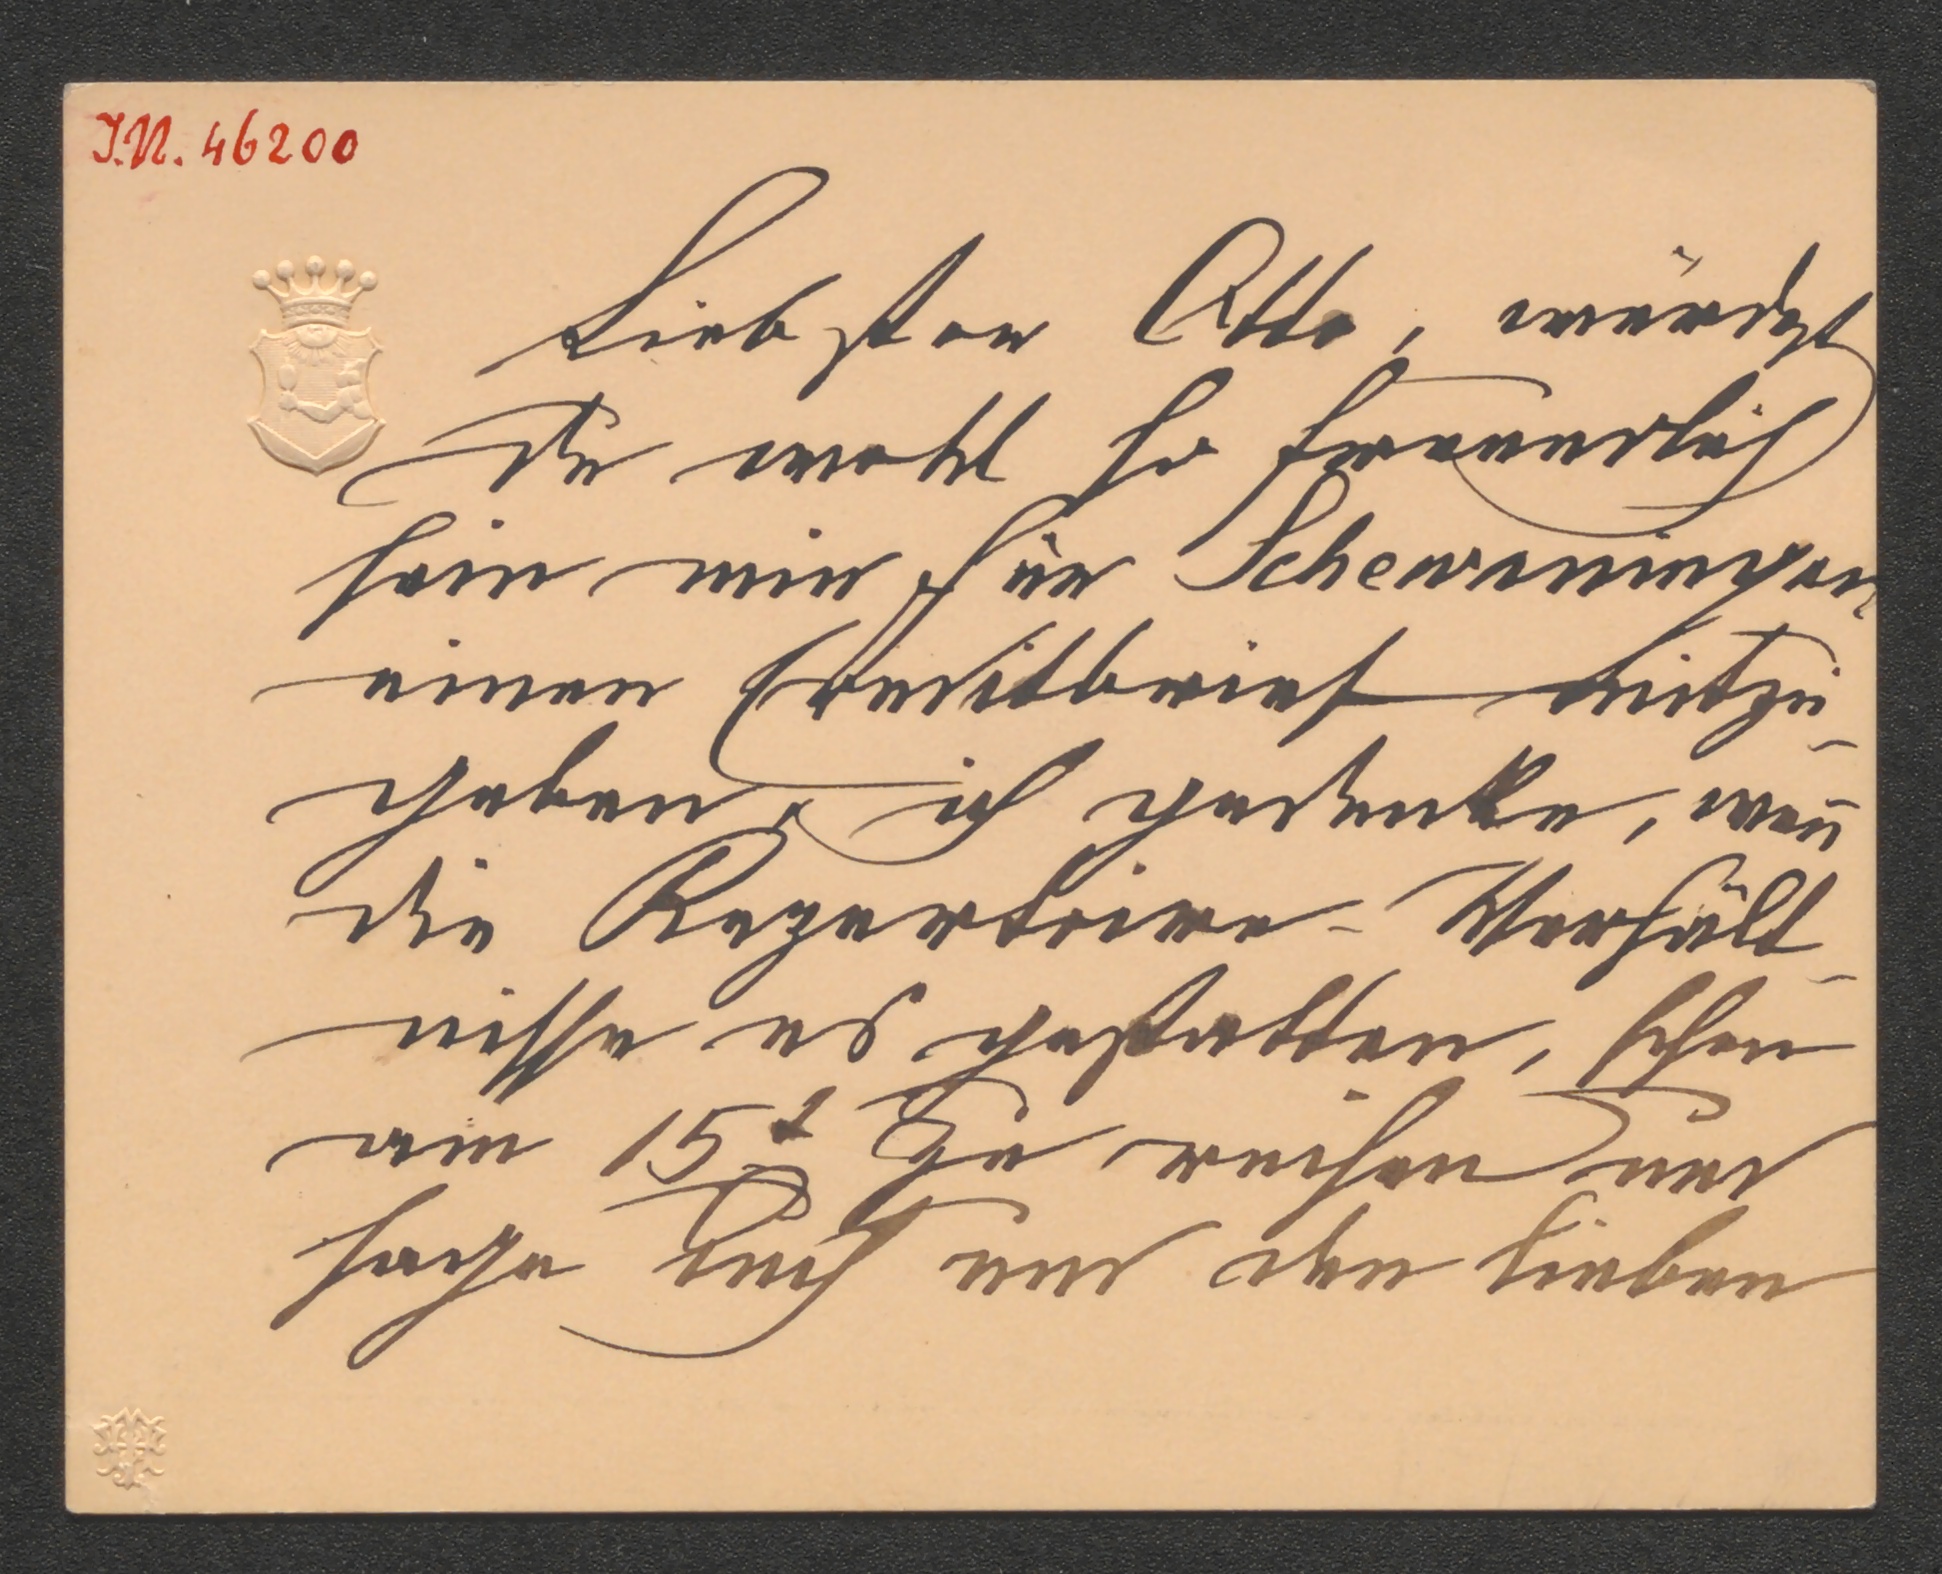 I.N. 46200
Liebster Otto, würdest
Du wohl so freundlich
sein mir für Scheweningen
einen Creditbrief mitzu-
geben, ich gedenke, wen̄
die Repertoire-Verhält-
nisse es gestatten, schon
am 15t zu reisen und
sage Dich und den lieben